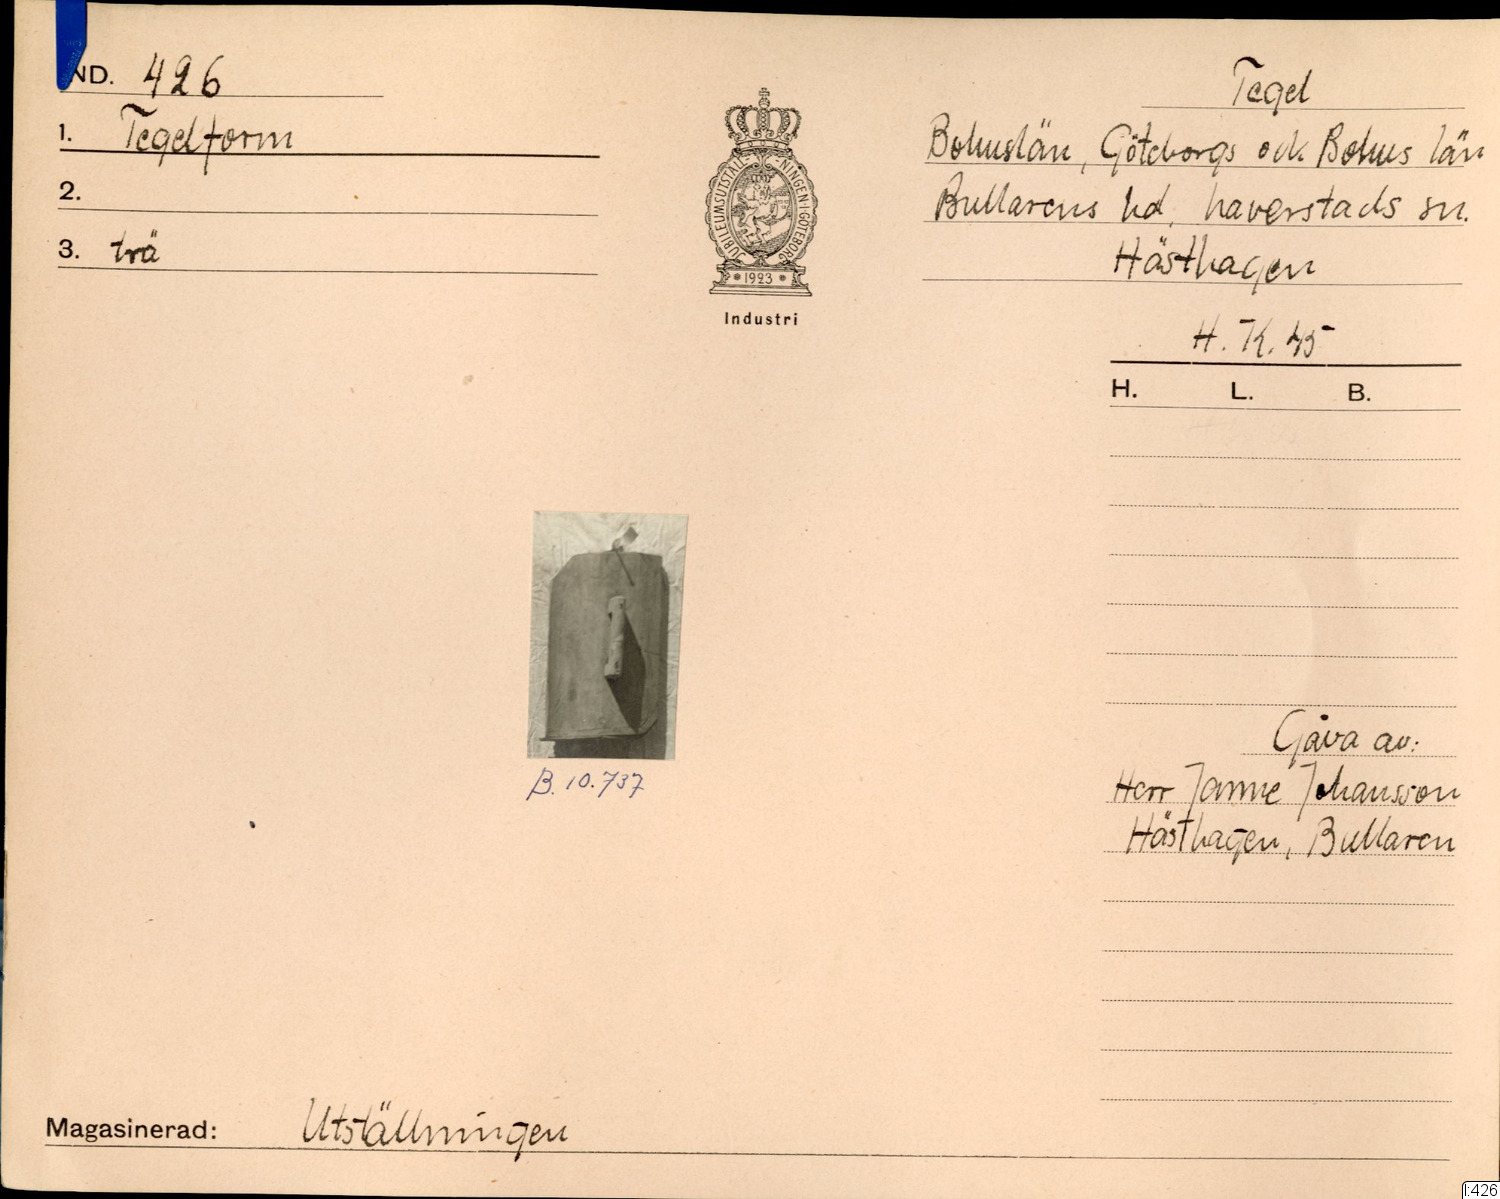 ND. 426
1. Tegelform
2.
3. trä
JUBILEUMSUTSTÄLLNINGEN I GÖTEBORG
1923
Industri
Tegel
Bohuslän, Göteborgs och Bohus län
Bullarens hd, haverstads sn.
Hästhagen
H. K. 45
H. L. B.
Gåva av:
Herr Janne Johansson
Hästhagen, Bullaren
B. 10.737
Magasinerad: Utställningen
I:426